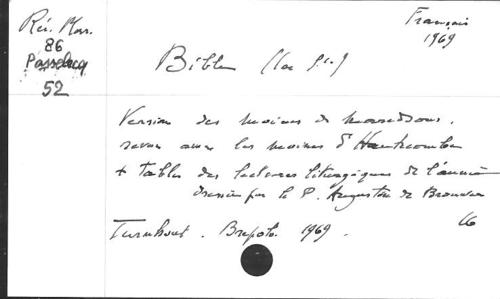 Rés. Mar.
86
Passelecq
52
Français
1969
Bible (La Ste)
Version des moines de Maredsous,
revue avec les moines d'Hautecombe
+ tables des lectures liturgiques de l'année
dressées par le P. Augustin de Brouwer
Turnhout. Brepols. 1969.